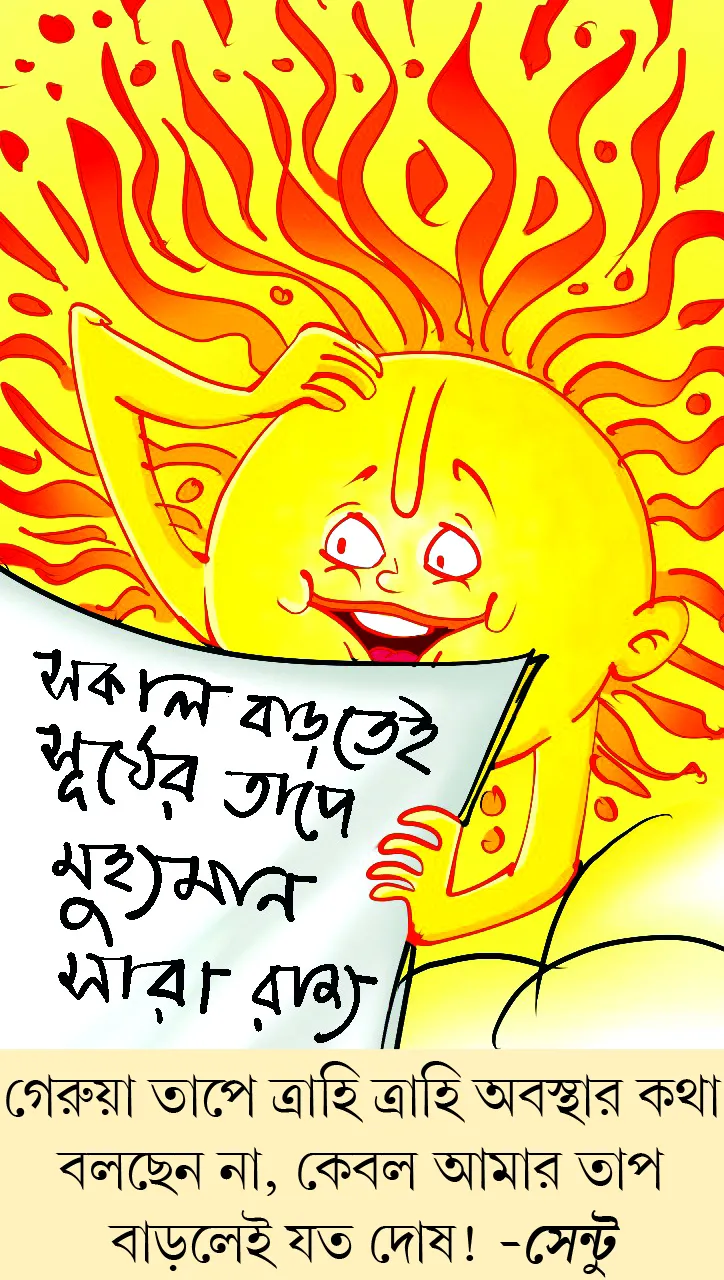 সকাল বাড়তেই
সূর্যের তাপে
মুহ্যমান
সারা রাজ্য
গেরুয়া তাপে ত্রাহি ত্রাহি অবস্থার কথা
বলছেন না, কেবল আমার তাপ
বাড়লেই যত দোষ! -সেন্টু